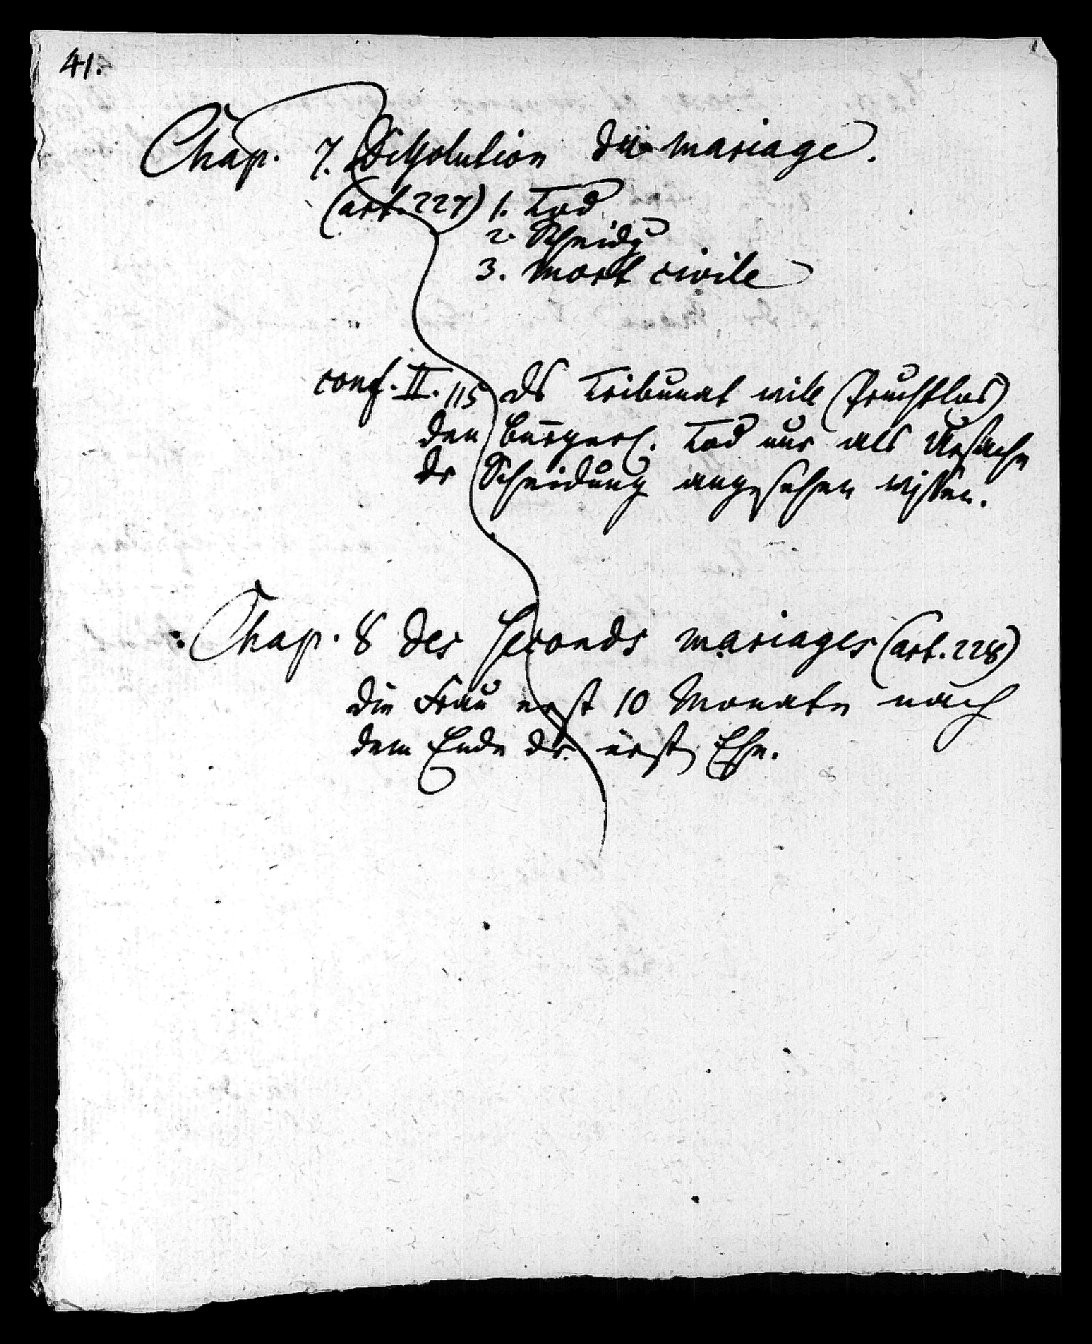 41.
Chap. 7. Dissolution du mariage.
(art. 227) 1. Tod
2. Scheidg
3. Mort civile
conf. II. 115 ds Tribunat will (fruchtlos)
den bürgerl. Tod nur als Ursache
dr Scheidung angesehen wissen.
Chap. 8 des seconds mariages (art. 228)
die Frau erst 10 Monate nach
dem Ende dr. erst Ehe.